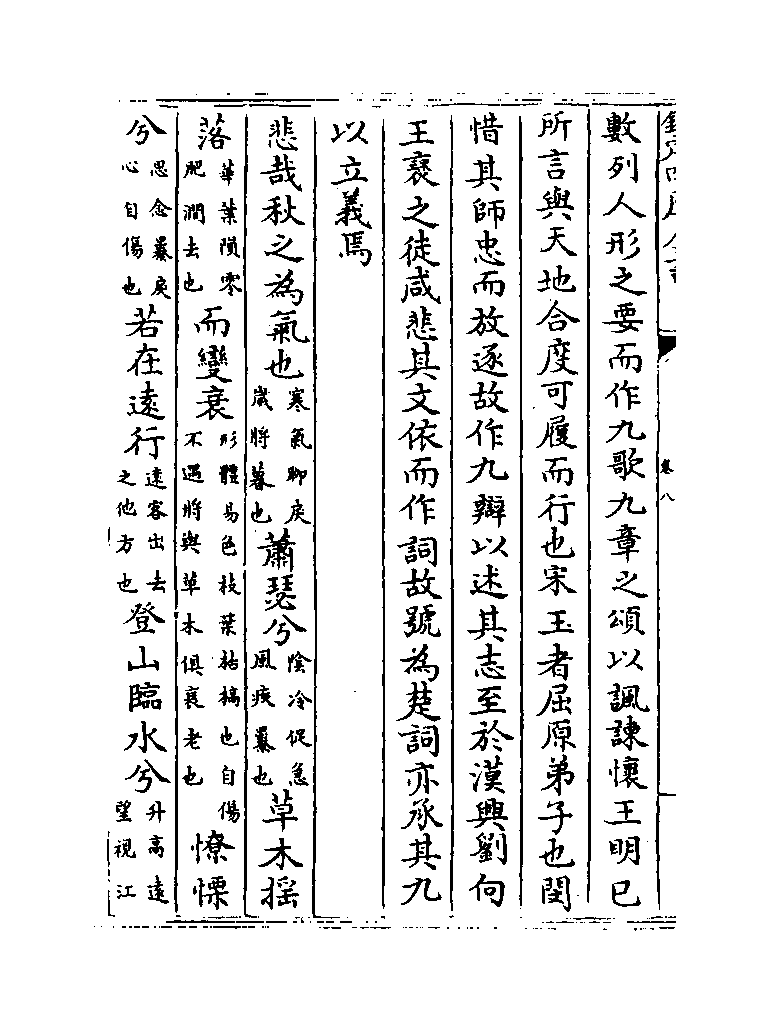 欽定四庫全書
卷八
數列人形之要而作九歌九章之頌以諷諫懷王明已
所言與天地合度可履而行也宋玉者屈原弟子也閔
惜其師忠而放逐故作九辯以述其志至於漢興劉向
王襃之徒咸悲其文依而作詞故號為楚詞亦承其九
以立義焉
悲哉秋之為氣也寒氣聊戾歲將暮也蕭瑟兮陰冷促急風疾暴也草木揺
落華葉隕零肥潤去也而變衰形體易色枝葉枯槁也自傷不遇將與草木俱衰老也憭慄
兮思念暴戾心自傷也若在逺行逺客出去之他方也登山臨水兮升高逺望視江